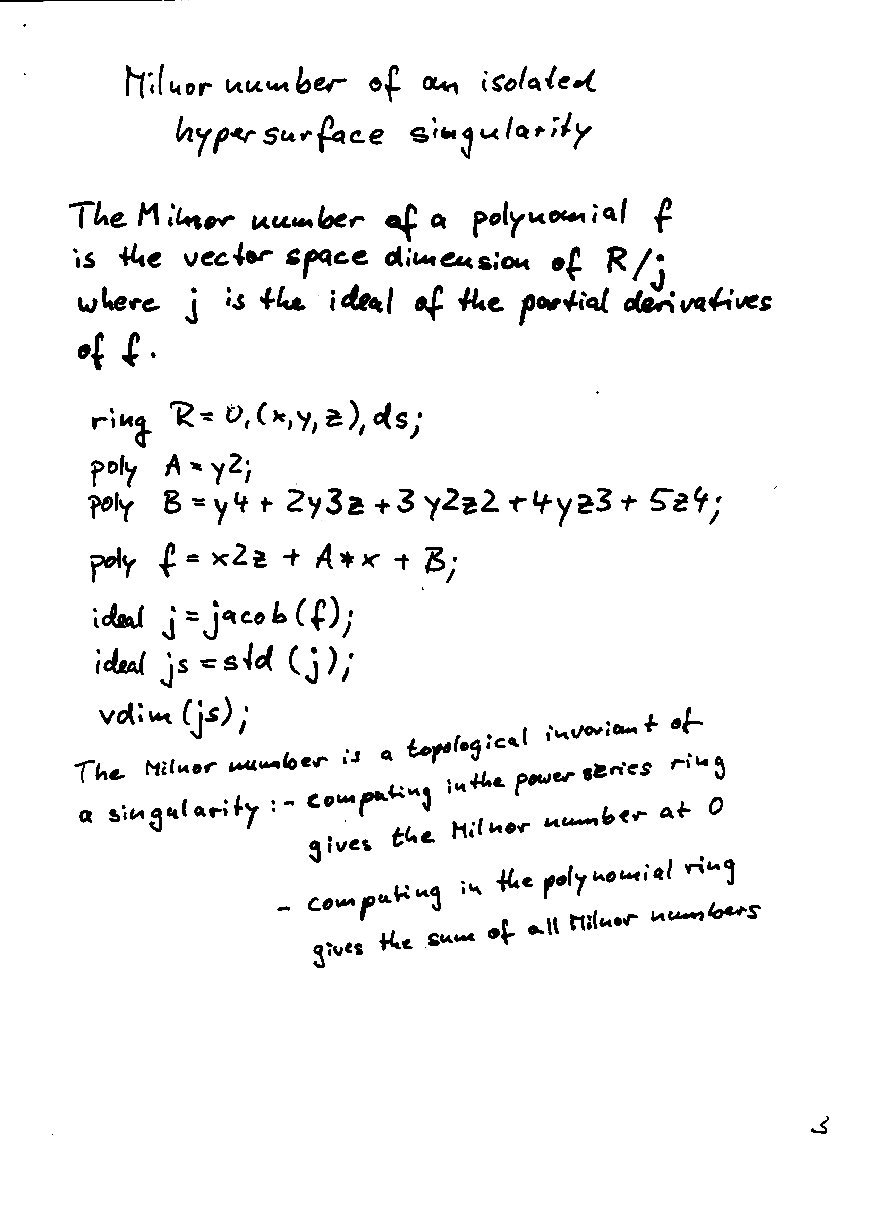 Milnor number of an isolated
hypersurface singularity
The Milnor number of a polynomial f
is the vector space dimension of R/j
where j is the ideal of the partial derivatives
of f.
ring R=0,(x,y,z),ds;
poly A=y2;
poly B=y4+2y3z+3y2z2+4yz3+5z4;
poly f=x2z+A*x+B;
ideal j=jacob(f);
ideal js=std(j);
vdim(js);
The Milnor number is a topological invariant of
a singularity:- computing in the power series ring
gives the Milnor number at 0
- computing in the polynomial ring
gives the sum of all Milnor numbers
3